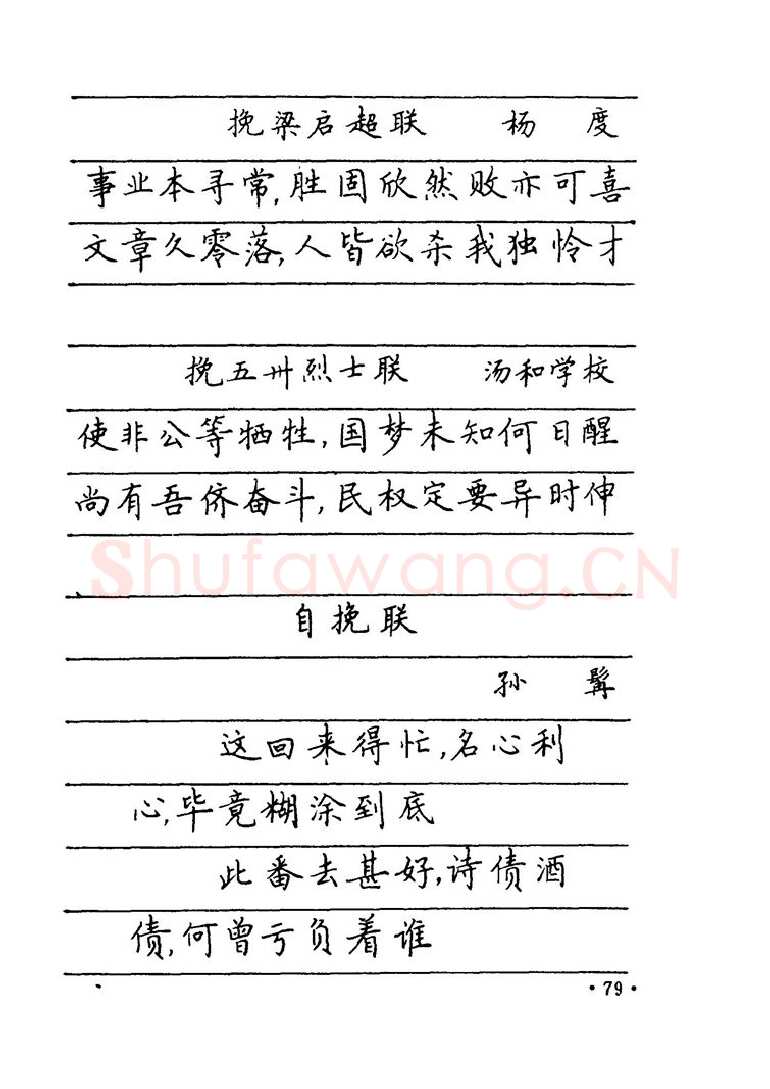 挽梁启超联 杨 度
事业本寻常,胜固欣然败亦可喜
文章久零落,人皆欲杀我独怜才
挽五卅烈士联 汤和学校
使非公等牺牲,国梦未知何日醒
尚有吾侪奋斗,民权定要异时伸
Shufawang.CN
自挽联
孙 髯
这回来得忙,名心利
心,毕竟糊涂到底
此番去甚好,诗债酒
债,何曾亏负着谁
·79·